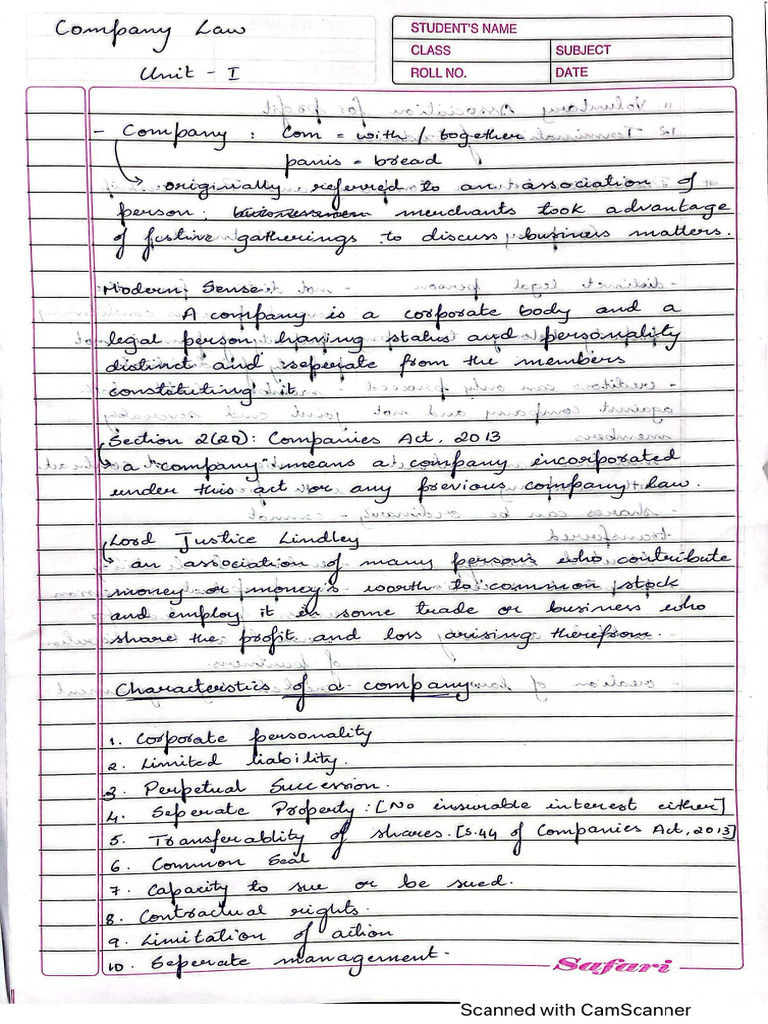 Company Law
Unit - I
STUDENT'S NAME
CLASS SUBJECT
ROLL NO. DATE
- Company : Com = with / together
panis = bread
→ originially referred to an association of
person ; merchants took advantage
of festive gatherings to discuss business matters.
Modern Sense
A company is a corporate body and a
legal person having status and personality
distinct and seperate from the members
constituting it
Section 2(20): Companies Act, 2013
→ a "company" means a company incorporated
under this act or any previous company law.
Lord Justice Lindley
→ an association of many persons who contribute
money or money's worth to common stock
and employ it in some trade or business who
share the profit and loss arising therefrom.
Characteristics of a company
1. Corporate personality
2. Limited liability.
3. Perpetual Succession.
4. Seperate Property : [No insurable interest either]
5. Transferablity of shares. [S.44 of Companies Act, 2013]
6. Common Seal
7. Capacity to sue or be sued.
8. Contractual rights.
9. Limitation of action
10. Seperate management.
Safari
Scanned with CamScanner